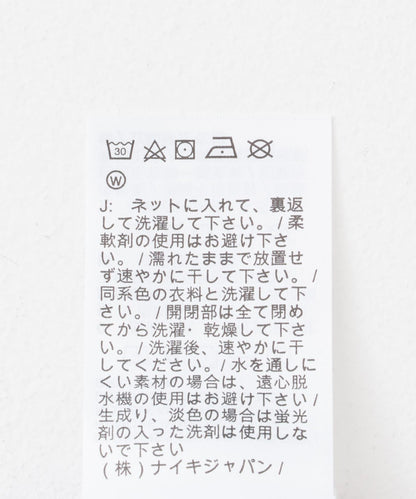 30
W
J: ネットに入れて、裏返
して洗濯して下さい。/ 柔
軟剤の使用はお避け下さ
い。/ 濡れたままで放置せ
ず速やかに干して下さい。/
同系色の衣料と洗濯して下
さい。/ 開閉部は全て閉め
てから洗濯・乾燥して下さ
い。/ 洗濯後、速やかに干
してください。/ 水を通しに
くい素材の場合は、遠心脱
水機の使用はお避け下さい /
生成り、淡色の場合は蛍光
剤の入った洗剤は使用しな
いで下さい
(株) ナイキジャパン /